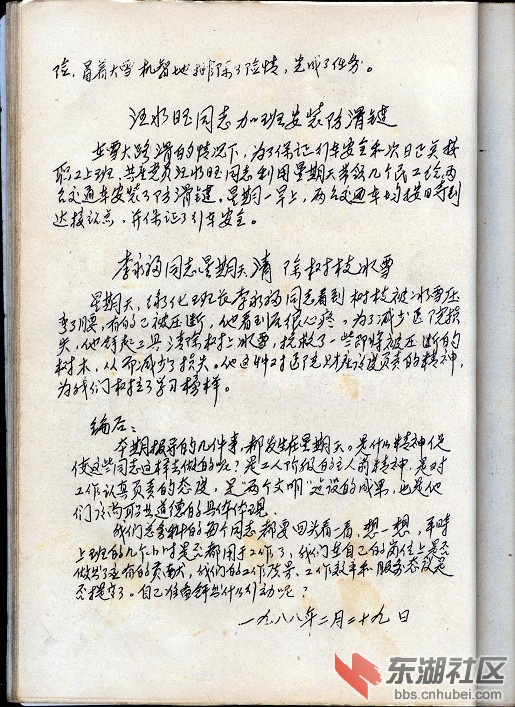 险，冒着大雪机智地排除了险情，完成了任务。
汪水旺同志加班安装防滑链
在雪大路滑的情况下，为了保证行车安全和次日正常接
职工上班，共产党员汪水旺同志利用星期天带领几个民工给两
台交通车安装了防滑链，星期一早上，两台交通车均按时到
达接站点，并保证了行车安全。
李永福同志星期天清除树枝冰雪
星期天，绿化班长李永福同志看到树枝被冰雪压
弯了腰，有的已被压断，他看到后很心疼，为了减少医院损
失，他拿起工具清除树上冰雪，挽救了一些即将被压断的
树木，从而减少了损失。他这种对医院财产认真负责的精神，
为我们树立了学习榜样。
编后：
本期报导的几件事，都发生在星期天。是什么精神促
使这些同志这样去做的呢？是工人阶级的主人翁精神，是对
工作认真负责的态度，是"两个文明"建设的成果，也是他
们高尚职业道德的具体体现。
我们总务科的每个同志都要回头看一看，想一想，平时
上班的几个小时是否都用于工作了，我们在自己的岗位上是否
做出了应有的贡献，我们的工作质量、工作效率和服务态度是
否提高了。自己准备拿出什么行动呢？
一九八八年二月二十九日
东湖社区
bbs.cnhubei.com